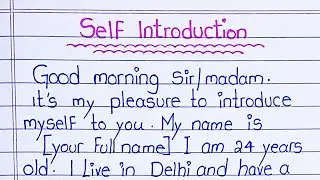 Self Introduction
Good morning Sir/madam.
it's my pleasure to introduce
myself to you. My name is
[your full name] I am 24 years
old. I live in Delhi and have a